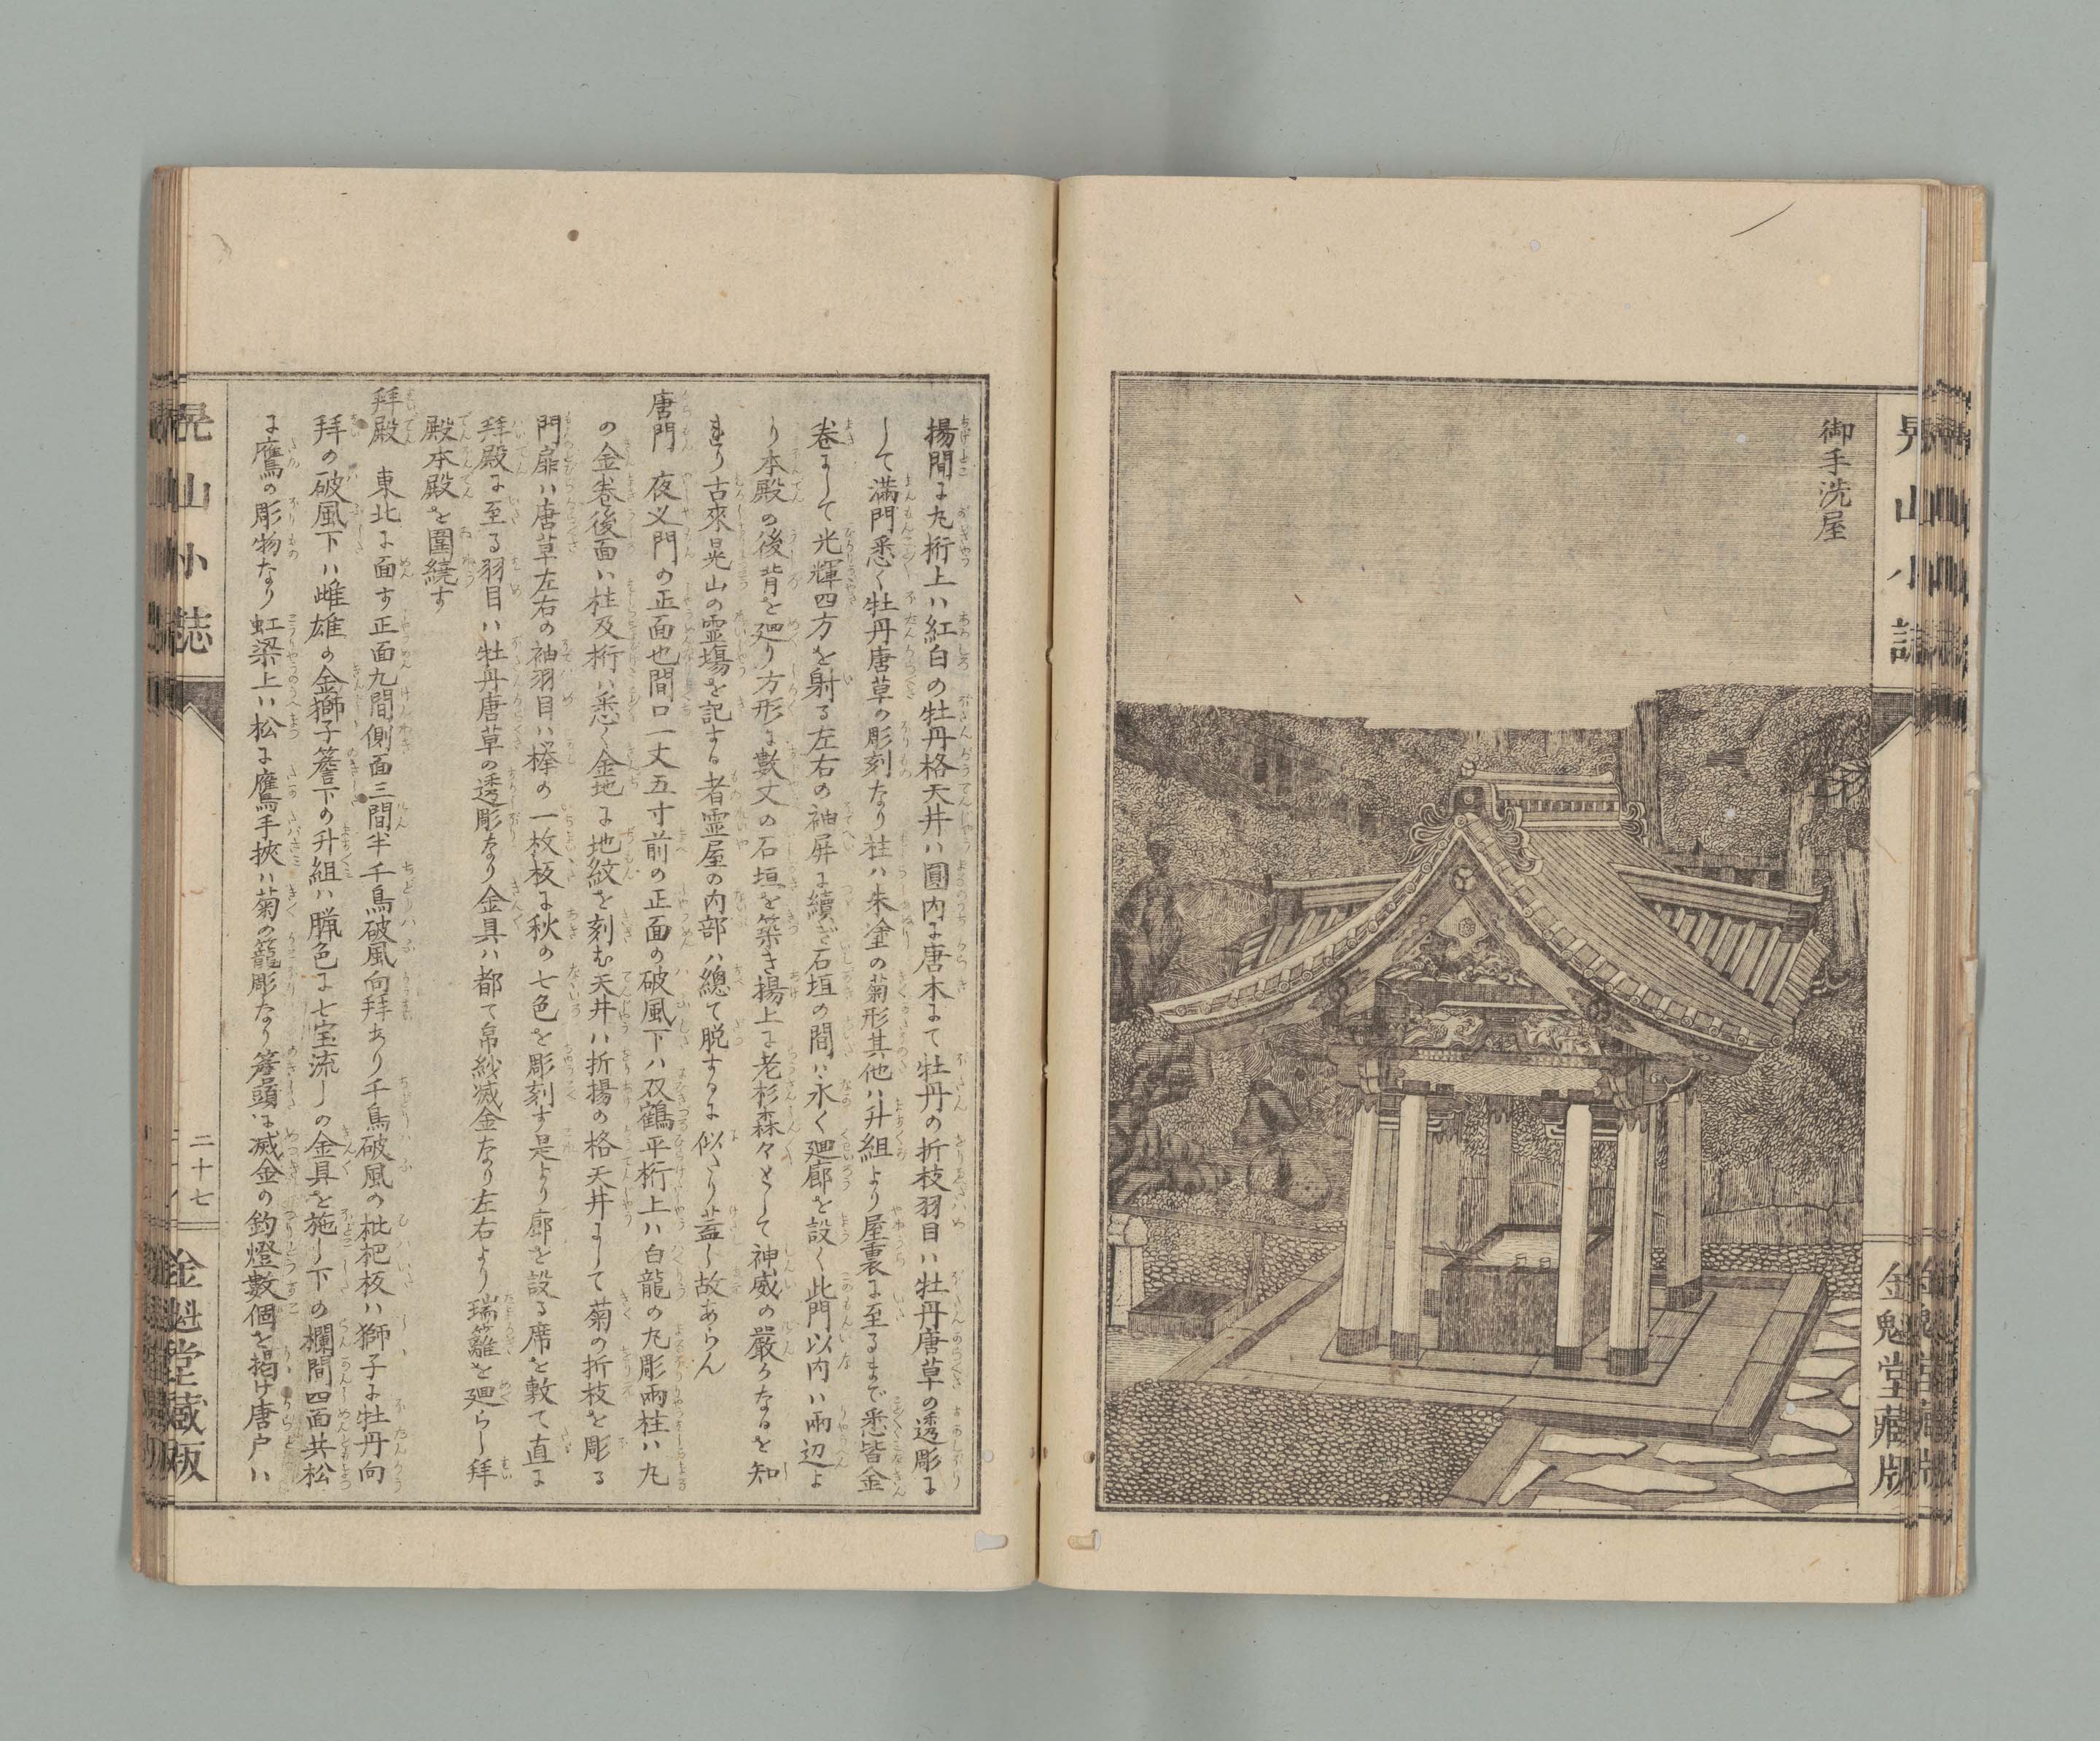 御手洗屋
晃山小誌
金魁堂藏版
揚間に丸桁上ハ紅白の牡丹格天井ハ圓内に唐木にて牡丹の折枝羽目ハ牡丹唐草の透彫に
して滿門悉く牡丹唐草の彫刻なり柱ハ朱塗の菊形其他ハ升組より屋裏に至るまで悉皆金
卷にして光輝四方を射る左右の袖屏に續ぎ石垣の間ハ永く廻廊を設く此門以内ハ兩辺よ
り本殿の後背を廻り方形に數丈の石垣を築き揚上に老杉森々として神威の嚴かなるを知
古來晃山の霊塲を記する者霊屋の内部ハ總て脱するに似たり蓋し故あらん
唐門 夜叉門の正面也間口一丈五寸前の正面の破風下ハ双鶴平桁上ハ白龍の丸彫兩柱ハ丸
の金卷後面ハ柱及桁ハ悉く金地に地紋を刻む天井ハ折揚の格天井にして菊の折枝を彫る
門扉ハ唐草左右の袖羽目ハ欅の一枚板に秋の七色を彫刻す是より廊を設る席を敷て直に
拜殿に至る羽目ハ牡丹唐草の透彫なり金具ハ都て帛紗滅金なり左右より瑞籬を廻らし拜
殿本殿を圍繞す
拜殿 東北に面す正面九間側面三間半千鳥破風向拜あり千鳥破風の枇杷板ハ獅子に牡丹向
拜の破風下ハ雌雄の金獅子簷下の升組ハ臈色に七宝流しの金具を施し下の欄間四面共松
に鷹の彫物なり虹梁上ハ松に鷹手挾ハ菊の籠彫なり簷頭に滅金の釣燈數個を掲け唐戸ハ
晃山小誌
二十七
金魁堂藏版